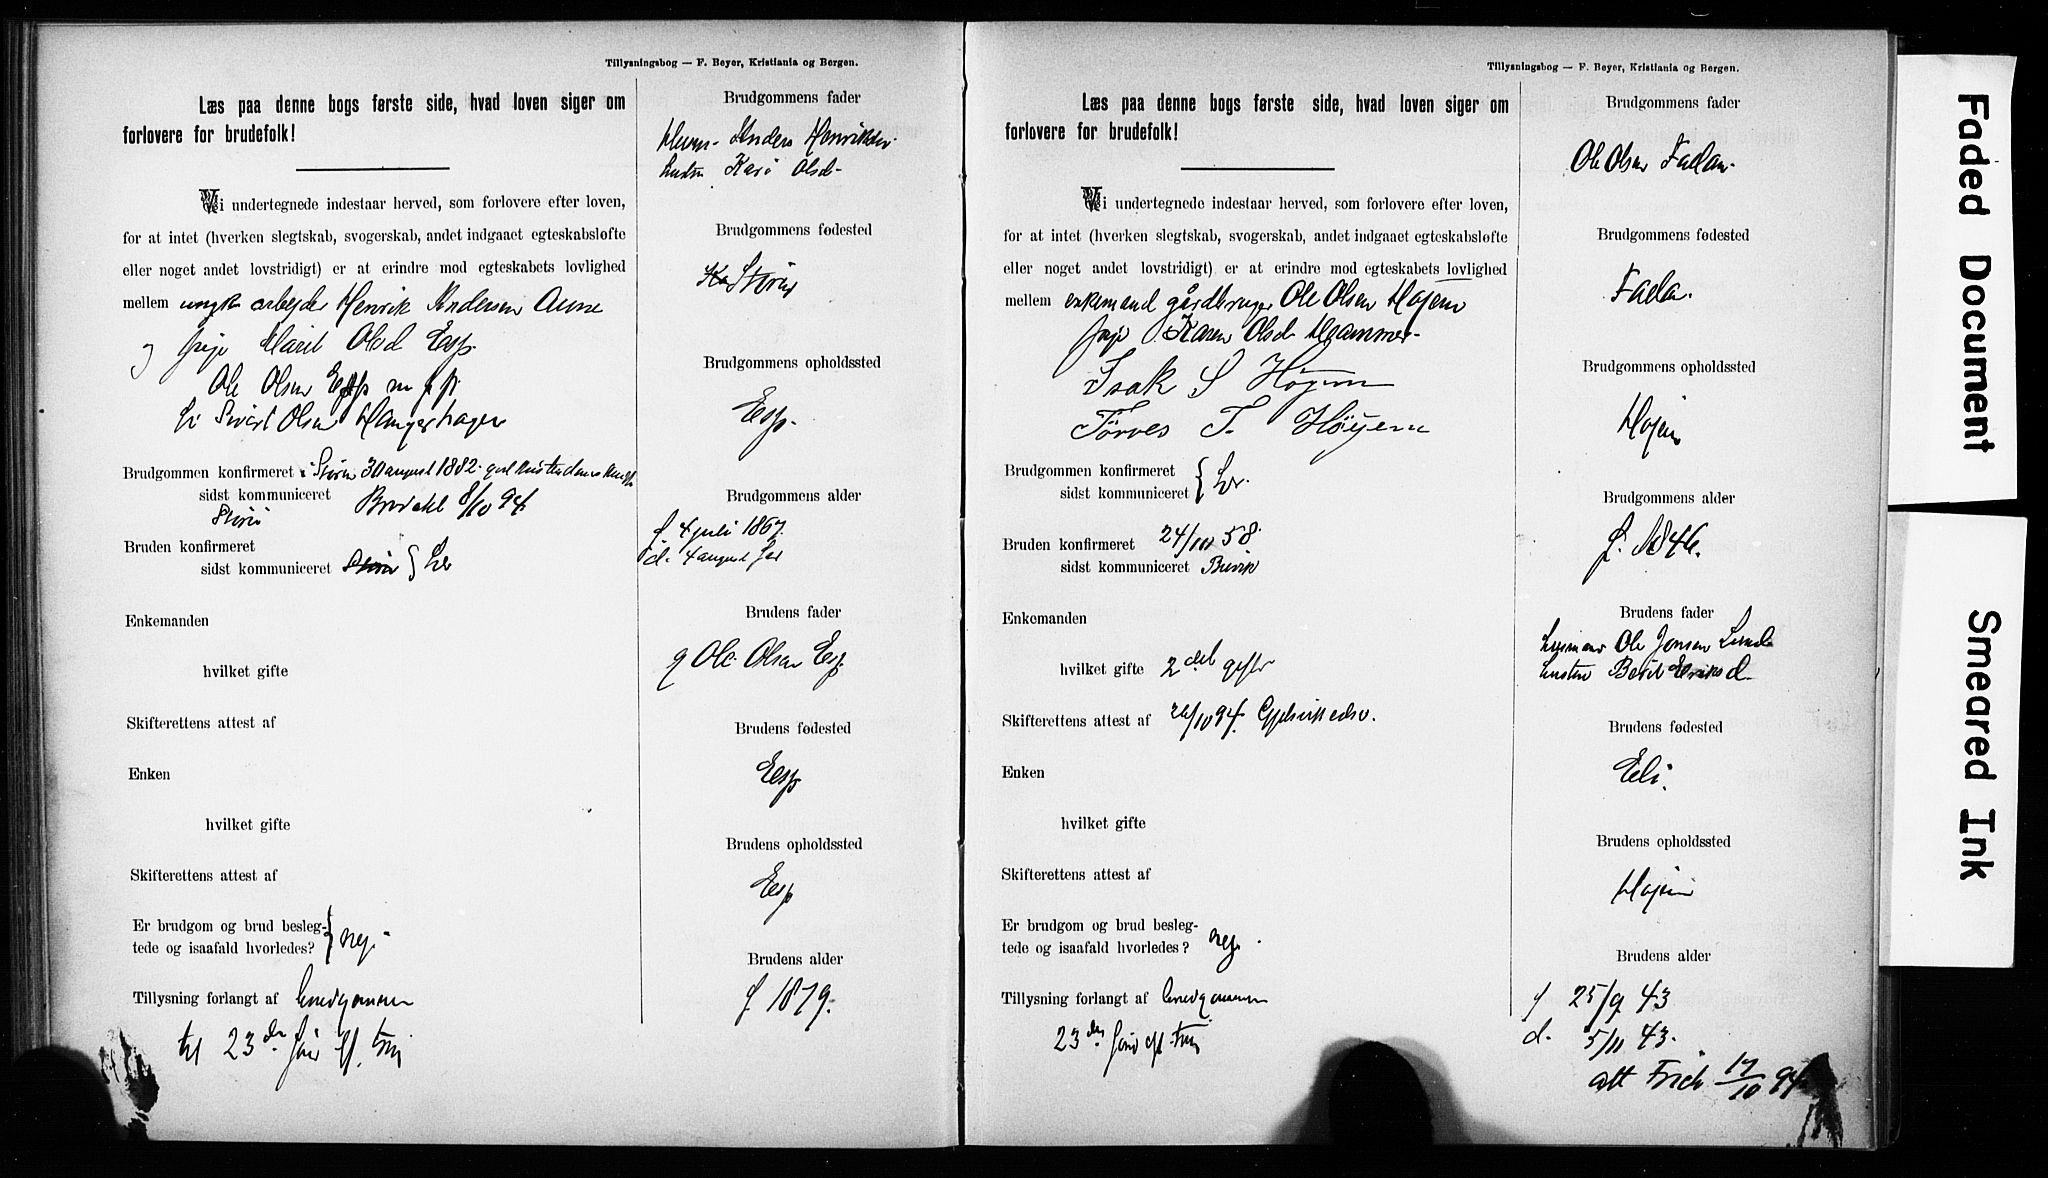 Tillysningsbog — F. Beyer, Kristiania og Bergen.
Læs paa denne bogs første side, hvad loven siger om
forlovere for brudefolk!
Vi undertegnede indestaar herved, som forlovere efter loven,
for at intet (hverken slegtskab, svogerskab, andet indgaaet egteskabsløfte
eller noget andet lovstridigt) er at erindre mod egteskabets lovlighed
mellem ungk arbejder Henrik Andersen Aune
og pige Marit Olsd Esp
Ole Olsen Esp m f p.
Sivert Olsen
Brudgommen konfirmeret i Støren 30 august 1882.
sidst kommuniceret 8/10 94.
Støren
Bruden konfirmeret
sidst kommuniceret Støren } Ler
Enkemanden
hvilket gifte
Skifterettens attest af
Enken
hvilket gifte
Skifterettens attest af
Er brudgom og brud besleg-
tede og isaafald hvorledes? } nej
Tillysning forlangt af brudgommen
til 23de søn ef. trin
Brudgommens fader
Anders Henriksen
Kari Olsd.
Brudgommens fødested
Støren
Brudgommens opholdssted
Esp.
Brudgommens alder
f. 4 juli 1867.
d. 4 august
Brudens fader
g Ole Olsen Esp
Brudens fødested
Esp
Brudens opholdssted
Esp
Brudens alder
f 1879.
Tillysningsbog — F. Beyer, Kristiania og Bergen.
Læs paa denne bogs første side, hvad loven siger om
forlovere for brudefolk!
Vi undertegnede indestaar herved, som forlovere efter loven,
for at intet (hverken slegtskab, svogerskab, andet indgaaet egteskabsløfte
eller noget andet lovstridigt) er at erindre mod egteskabets lovlighed
mellem enkemand gårdbruger Ole Olsen Højem
pige Karen Olsd Hammer
Isak S Høyem
T. Høyem
Brudgommen konfirmeret
sidst kommuniceret } Ler.
Bruden konfirmeret 24/10 58.
sidst kommuniceret
Enkemanden
hvilket gifte 2det gifte
Skifterettens attest af 26/10 94.
Enken
hvilket gifte
Skifterettens attest af
Er brudgom og brud besleg-
tede og isaafald hvorledes? nej.
Tillysning forlangt af brudgommen
23de søn ef. trin
Brudgommens fader
Ole Olsen Fadan
Brudgommens fødested
Fada.
Brudgommens opholdssted
Højem
Brudgommens alder
f. 1846.
Brudens fader
husmand Ole Jonsen
hustru Berit Eriksd.
Brudens fødested
Eli.
Brudens opholdssted
Højem
Brudens alder
f 25/9 43
d. 5/11 43.
att Frich 17/10 94
Faded Document
Smeared Ink